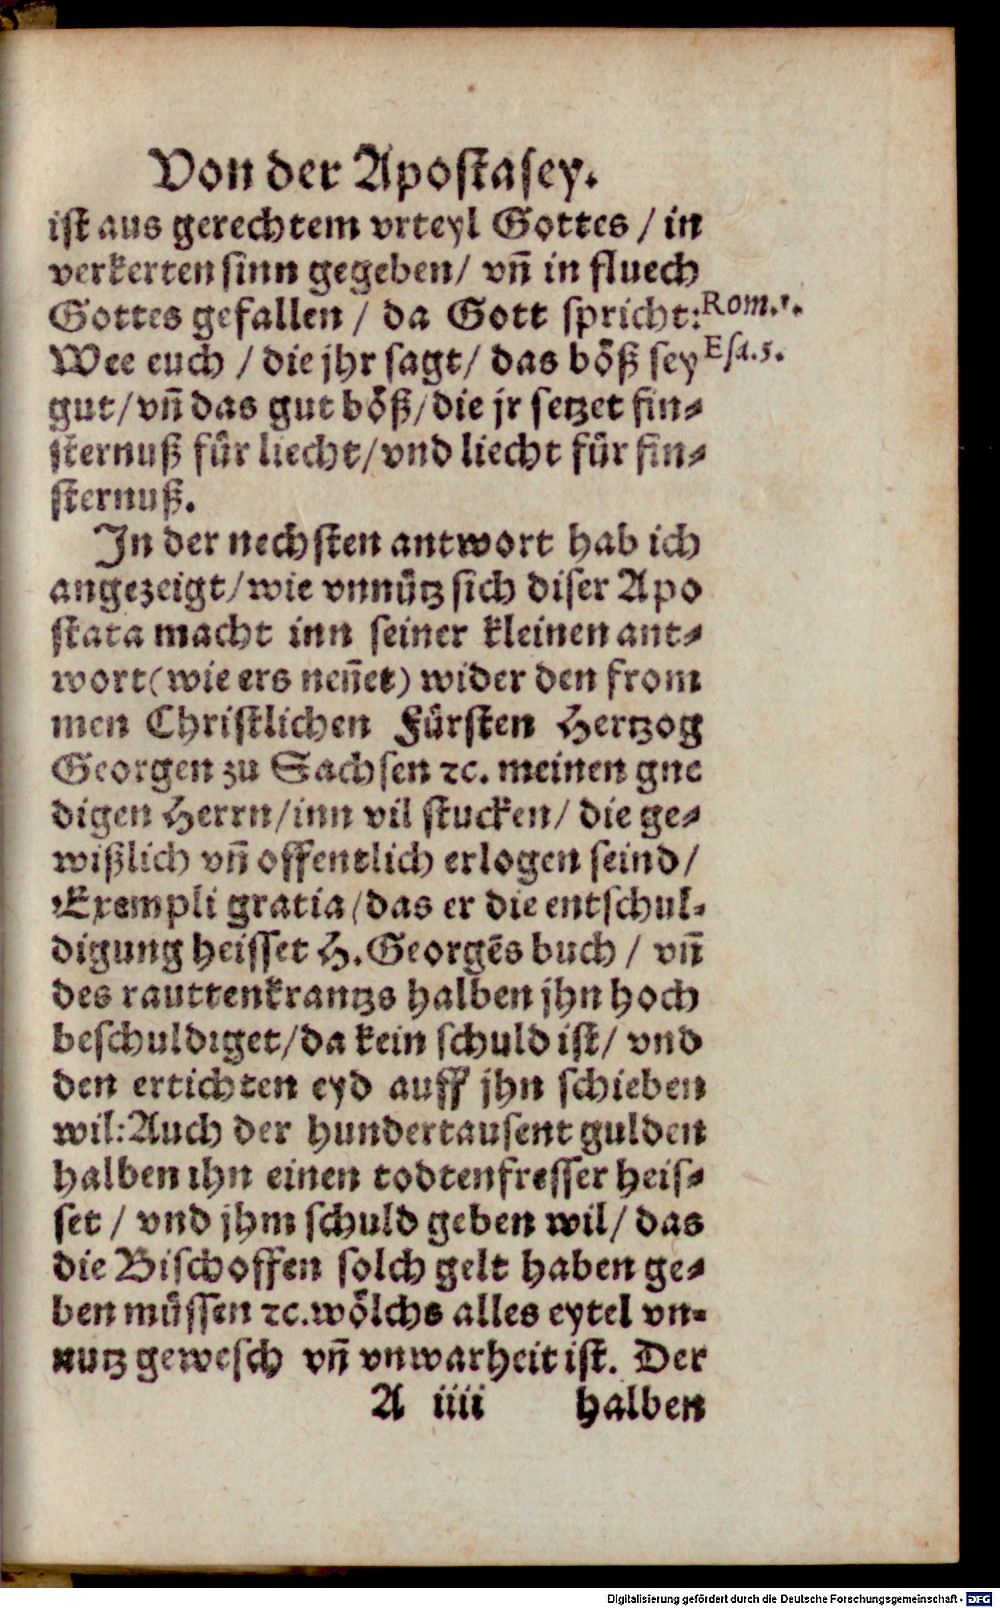 Von der Apostasey.
ist aus gerechtem vrteyl Gottes / in
verkerten sinn gegeben/ vñ in fluech
Gottes gefallen / da Gott spricht:
Rom. 1.
Wee euch / die jhr sagt/ das böß sey
Esa. 5.
gut/vñ das gut böß/die jr setzet fin-
sternuß für liecht/vnd liecht für fin-
sternuß.
In der nechsten antwort hab ich
angezeigt/wie vnnütz sich diser Apo
stata macht inn seiner kleinen ant-
wort(wie ers neñet) wider den from
men Christlichen Fürsten Hertzog
Georgen zu Sachsen ꝛc. meinen gne
digen Herrn/inn vil stucken/ die ge-
wißlich vñ offentlich erlogen seind/
Exempli gratia/das er die entschul-
digung heisset H. Georgẽs buch / vñ
des rauttenkrantzs halben jhn hoch
beschuldiget/da kein schuld ist/ vnd
den ertichten eyd auff jhn schieben
wil:Auch der hundertausent gulden
halben ihn einen todtenfresser heis-
set / vnd jhm schuld geben wil/ das
die Bischoffen solch gelt haben ge-
ben müssen ꝛc.wölchs alles eytel vn-
nutz gewesch vñ vnwarheit ist. Der
A iiii halben
Digitalisierung gefördert durch die Deutsche Forschungsgemeinschaft - DFG